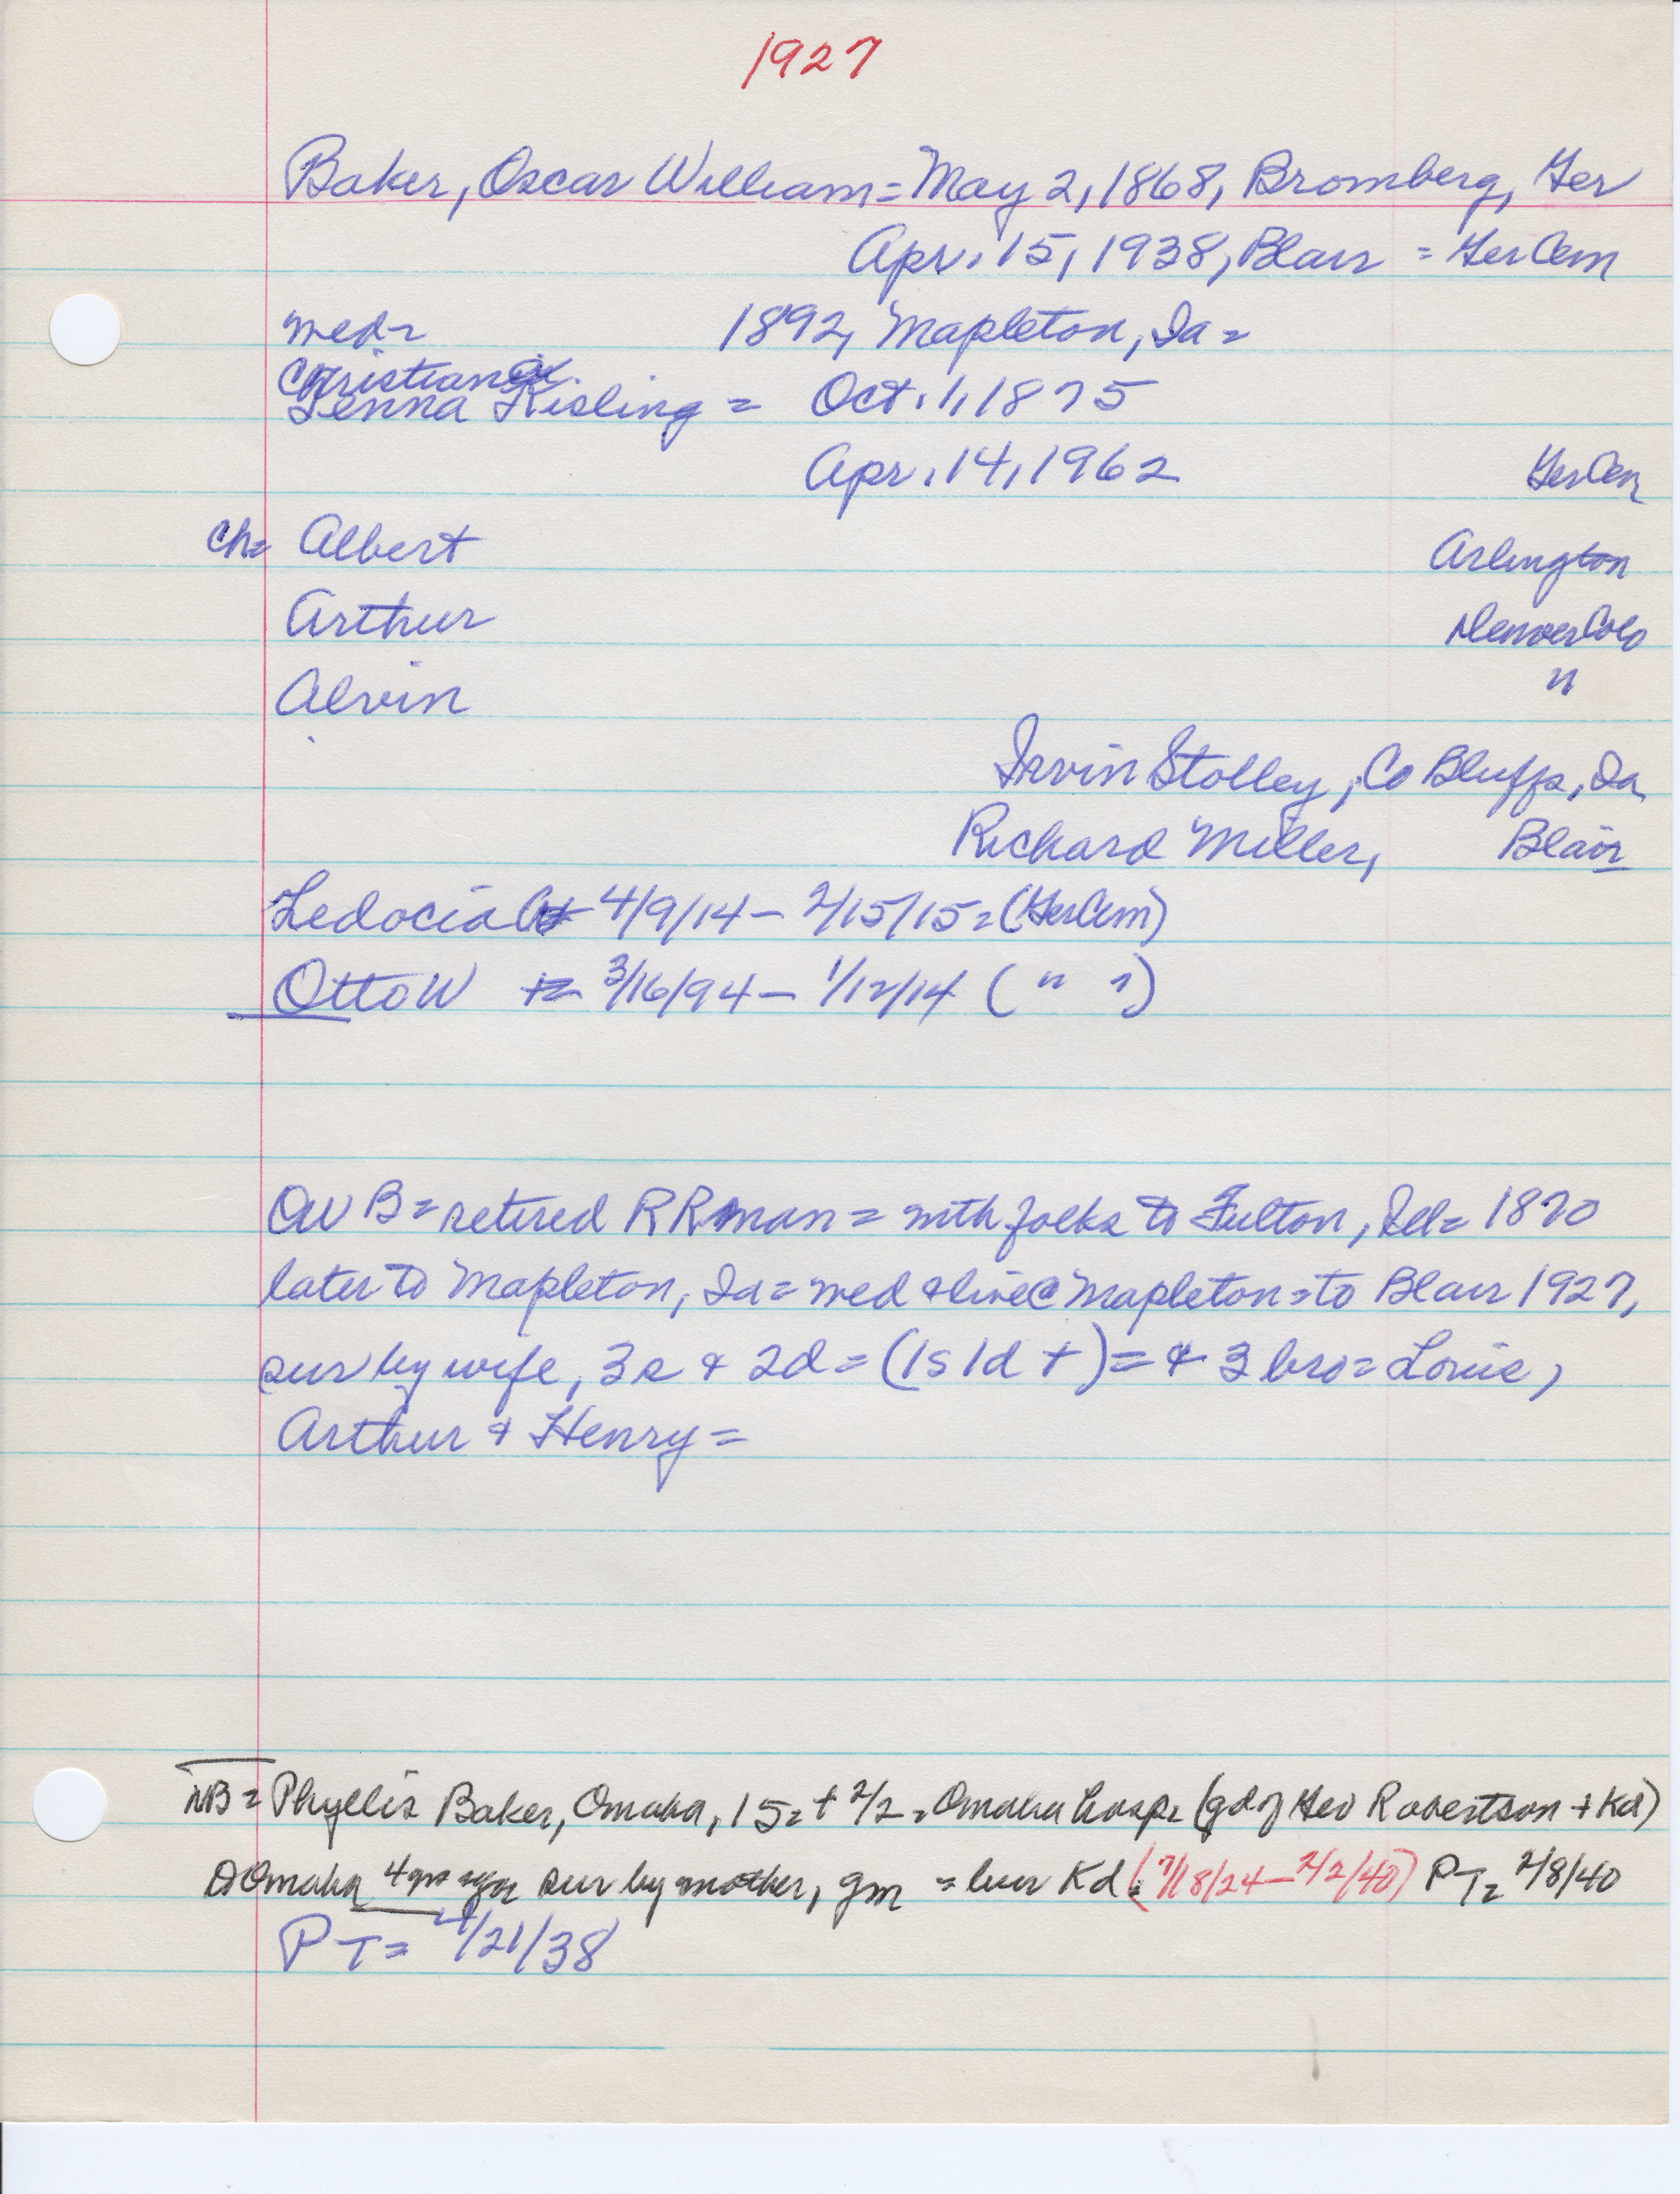 1927
Baker, Oscar William = May 2, 1868, Bromberg, Ger
Apr. 15, 1938, Blair = Ger Cem
med =
1892, Mapleton, Ia =
Christiana
Lenna Kisling = Oct. 1, 1875
Apr. 14, 1962 Ger Cem
Ch = Albert Arlington
Arthur Denver Colo
Alvin "
Irvin Stolley, Co Bluffs, Ia
Richard Miller, Blair
Ledocia 4/9/14 - 2/15/15 = (Ger Cem)
Otto W = 3/16/94 - 1/12/14 ( " " )
OWB = retired RR man = with folks to Fulton, Ill = 1870
later to Mapleton, Ia = med & live @ Mapleton = to Blair 1927,
sur by wife, 3s & 2d = (1s 1d +) = & 3 bro = Louie,
Arthur & Henry =
NB = Phyllis Baker, Omaha, 15 = + 2/2 = Omaha hosp = (gd of Geo Robertson + Kd)
Omaha 4 yrs ago sur by mother, gm = bur Kd (7/18/24 - 2/2/40) PT = 2/8/40
PT = 4/21/38